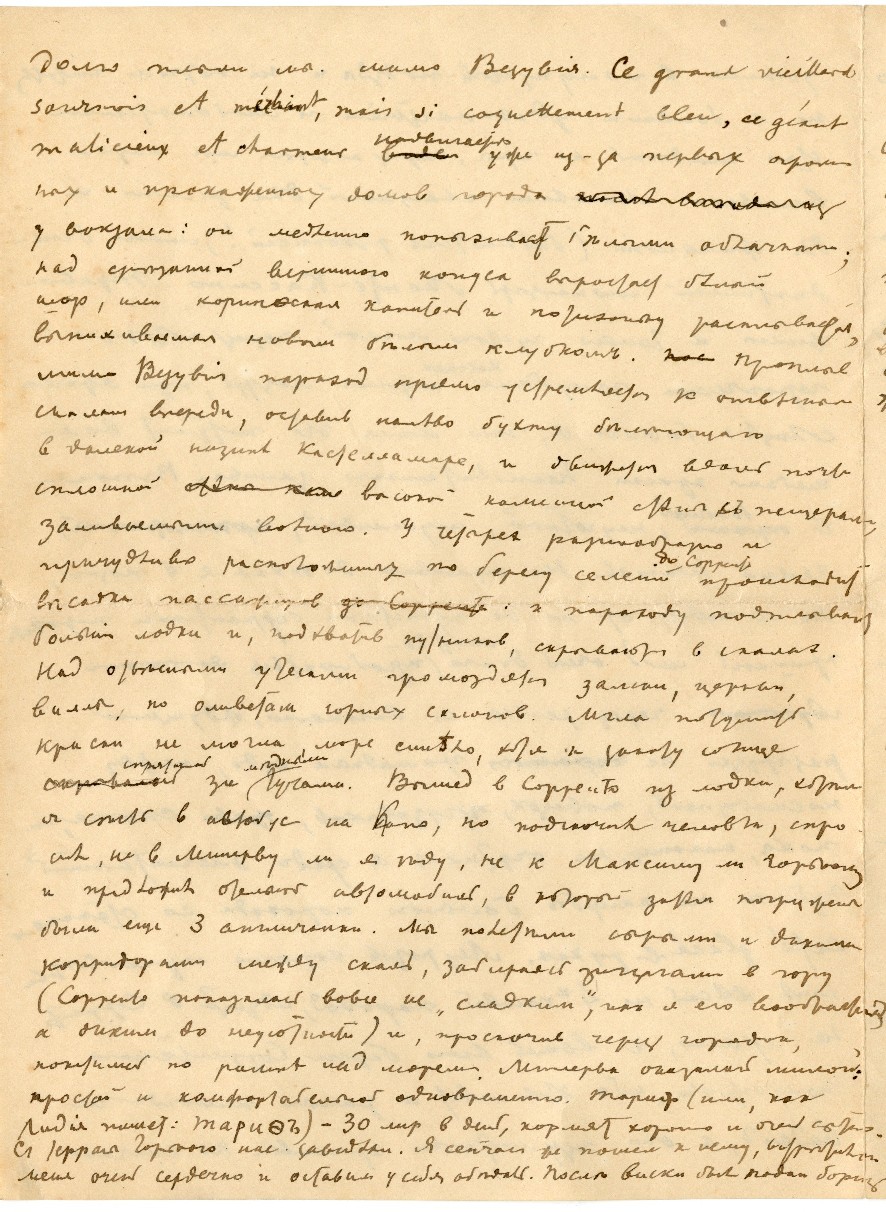 Долго плыли мы мимо Везувия. Ce grand vieillard
sournois et méchant, mais si coquettement bleu, ce géant
malicieux et charmeur надвигается уже из-за первых огром-
ных и прокаженных домов города
у вокзала: он медленно попыхивает белыми облачками;
над срезанной вершиной конуса вырастает белый
шар, или коринфская капитель и понемногу расплывается,
выпихиваемая новым белым клубком. Проплыв
мимо Везувия пароход прямо устремляется к отвесным
скалам впереди, оставив налево бухту белеющего
в далекой низине Кастелламаре, и движется вдоль почти
сплошной высокой каменной стены съ пещерами,
заливаемыми водою. У четырех разнообразно и
причудливо расположенных по берегу селений до Сорренто происходит
высадка пассажиров: к пароходу подплывают
большие лодки и, подхватив путников, скрываются в скалах.
Над отвесными утесами громоздятся замки, церкви,
виллы, по оливетам горных склонов. Мгла потушить
краски не могла, море синело, хотя к закату солнце
спряталось за тучами. Вышед в Сорренто из лодки, хотел
я сесть в автобус на Капо, но подскочил человек, спро-
сил, не в Минерву ли я еду, не к Максиму ли Горькому
и предложил отельный автомобиль, в который затем погружены
были еще 3 англичанки. Мы полетели сырыми и дикими
корридорами между скал, забираясь зигзагами в гору
(Сорренто показалось вовсе не „сладким", как я его воображал,
а диким до неуютности) и, проскочив через городок,
покатились по равнине над морем. Минерва оказалась милой:
простой и комфортабельной одновременно. Тариф (или, как
Лидия пишет: тариѳъ) – 30 лир в день, кормят хорошо и очень сытно.
С террасы Горького нас завидели. Я сейчас же пошел к нему,
меня очень сердечно и оставили у себя обедать. После виски был подан борщ